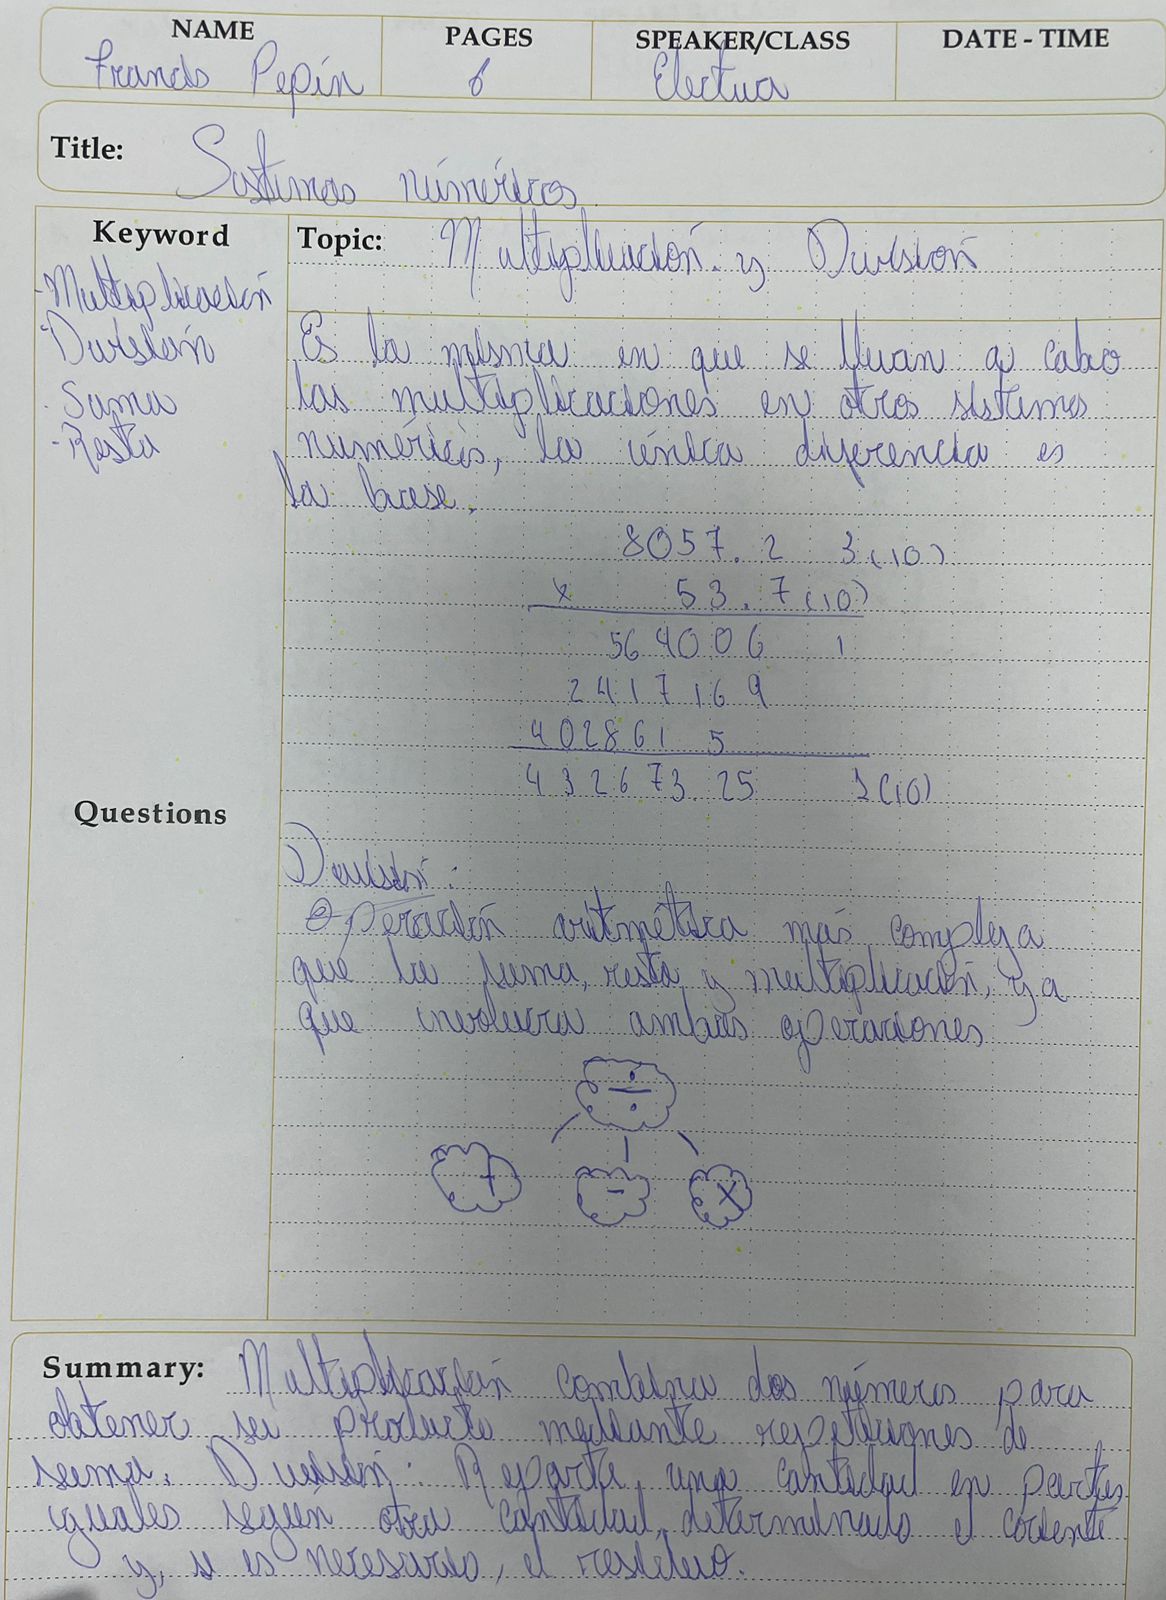 NAME
PAGES
SPEAKER/CLASS
DATE - TIME
Francis Pepín
6
Electiva
Title: Sistemas númericos.
Keyword
- Multiplicación
- División
- Suma
- Resta
Questions
Topic: Multiplicación y División
Es la misma en que se llevan a cabo
las multiplicaciones en otros sistemas
numéricos, la única diferencia es
la base.
8057.2 3(10)
x 53.7(10)
564006 1
2417169
402861 5
432673.25 1(10)
División:
Operación aritmética más compleja
que la suma, resta y multiplicación, ya
que involucra ambas operaciones
÷
+ - x
Summary: Multiplicación combina dos números para
obtener su producto mediante repeticiones de
suma. División: Reparte una cantidad en partes
iguales según otra cantidad, determinado el cociente
y, si es necesario, el residuo.